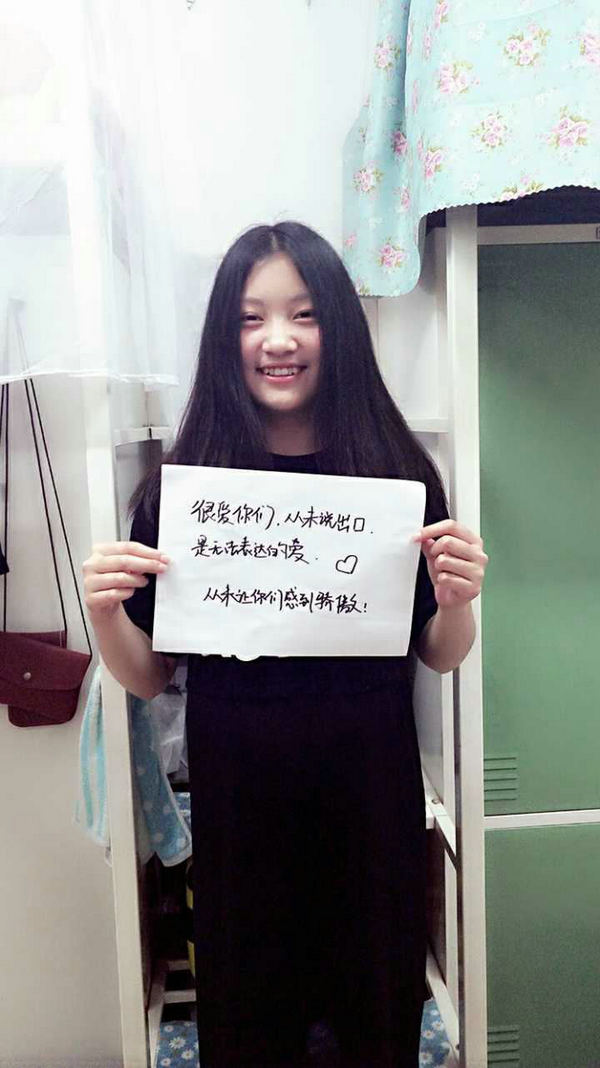 很爱你们，从未说出口.
是无法表达的爱.
从未让你们感到骄傲！